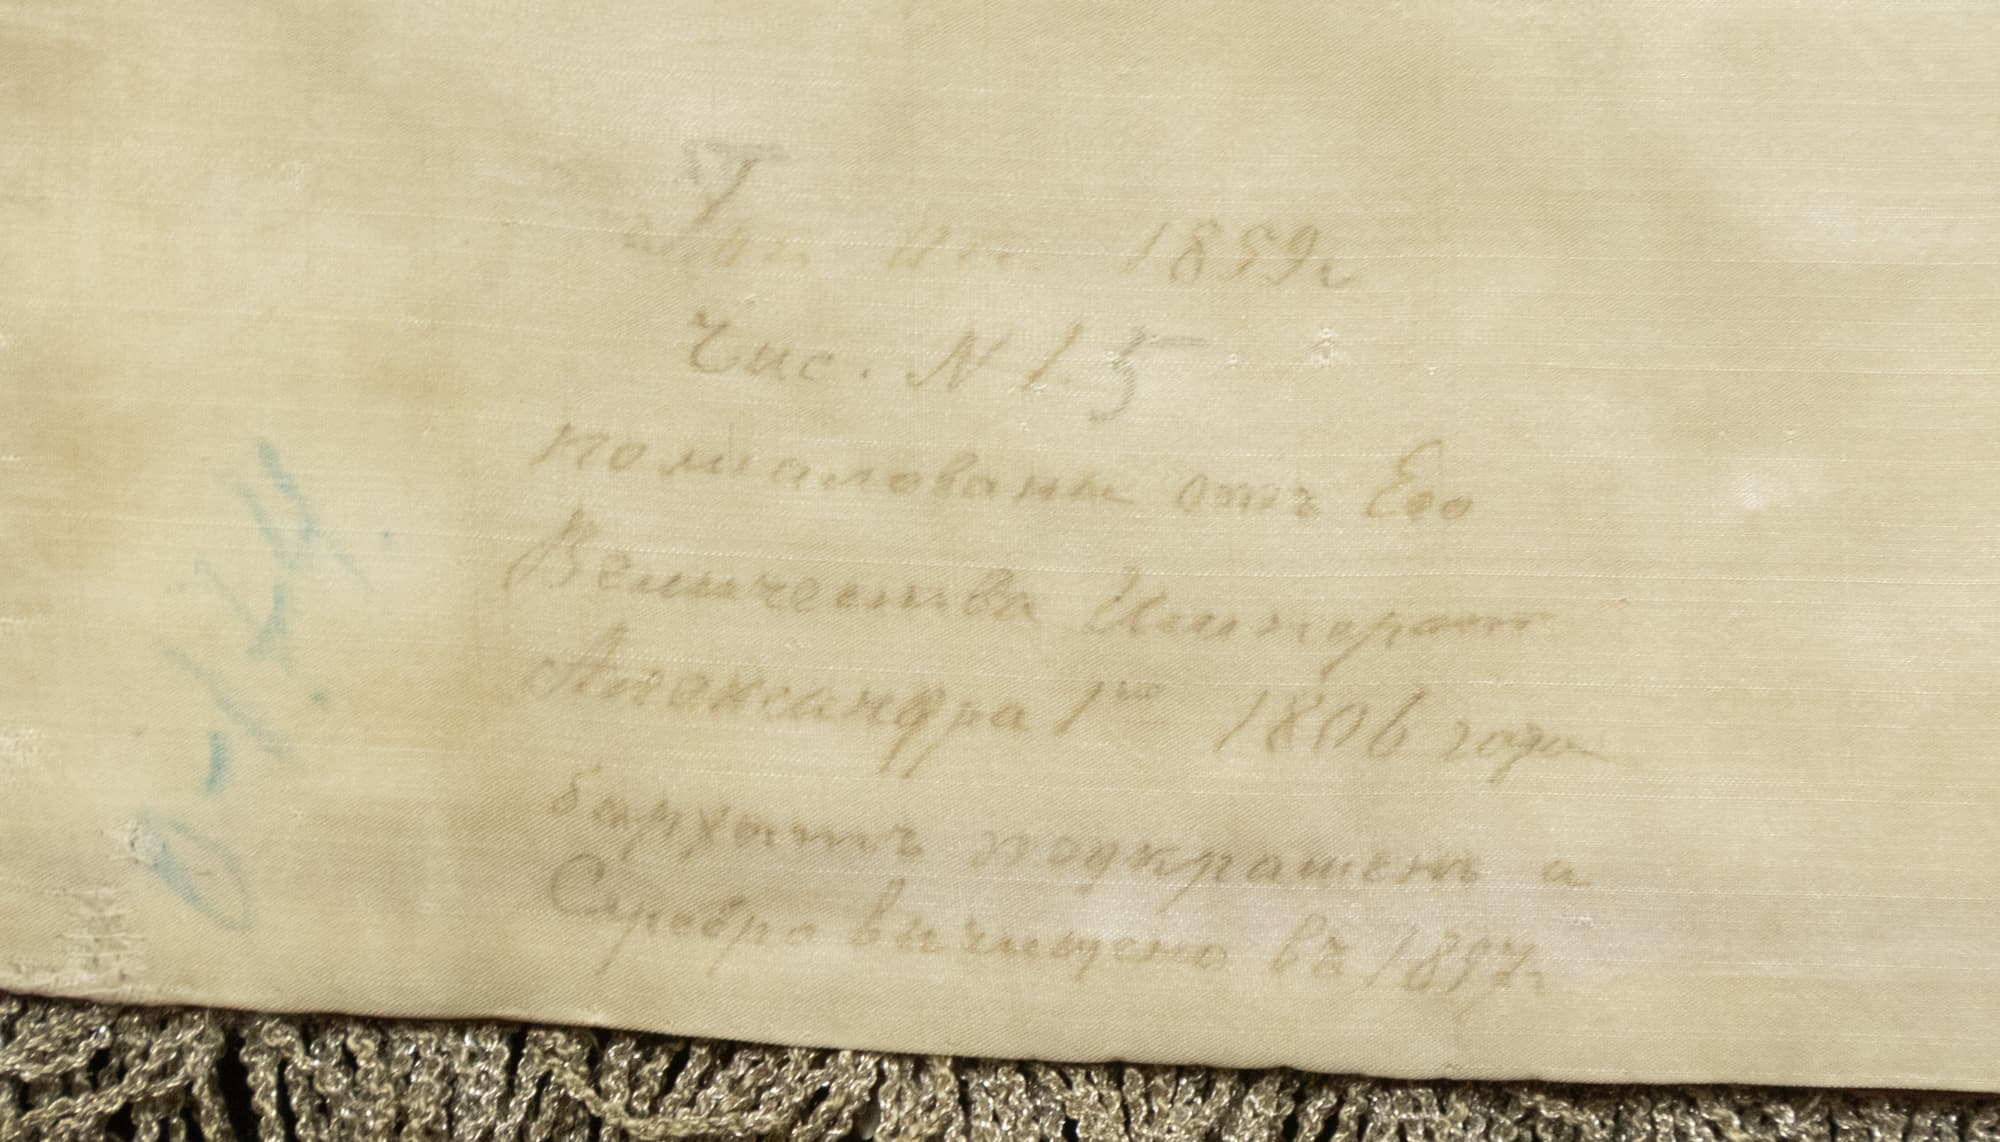 1859г
Чис. N 1. 5
пожалованы отъ Его
Величества Императ
Александра 1го 1806 года
бархатъ подкрашенъ а
Серебро вычищено въ 1897г